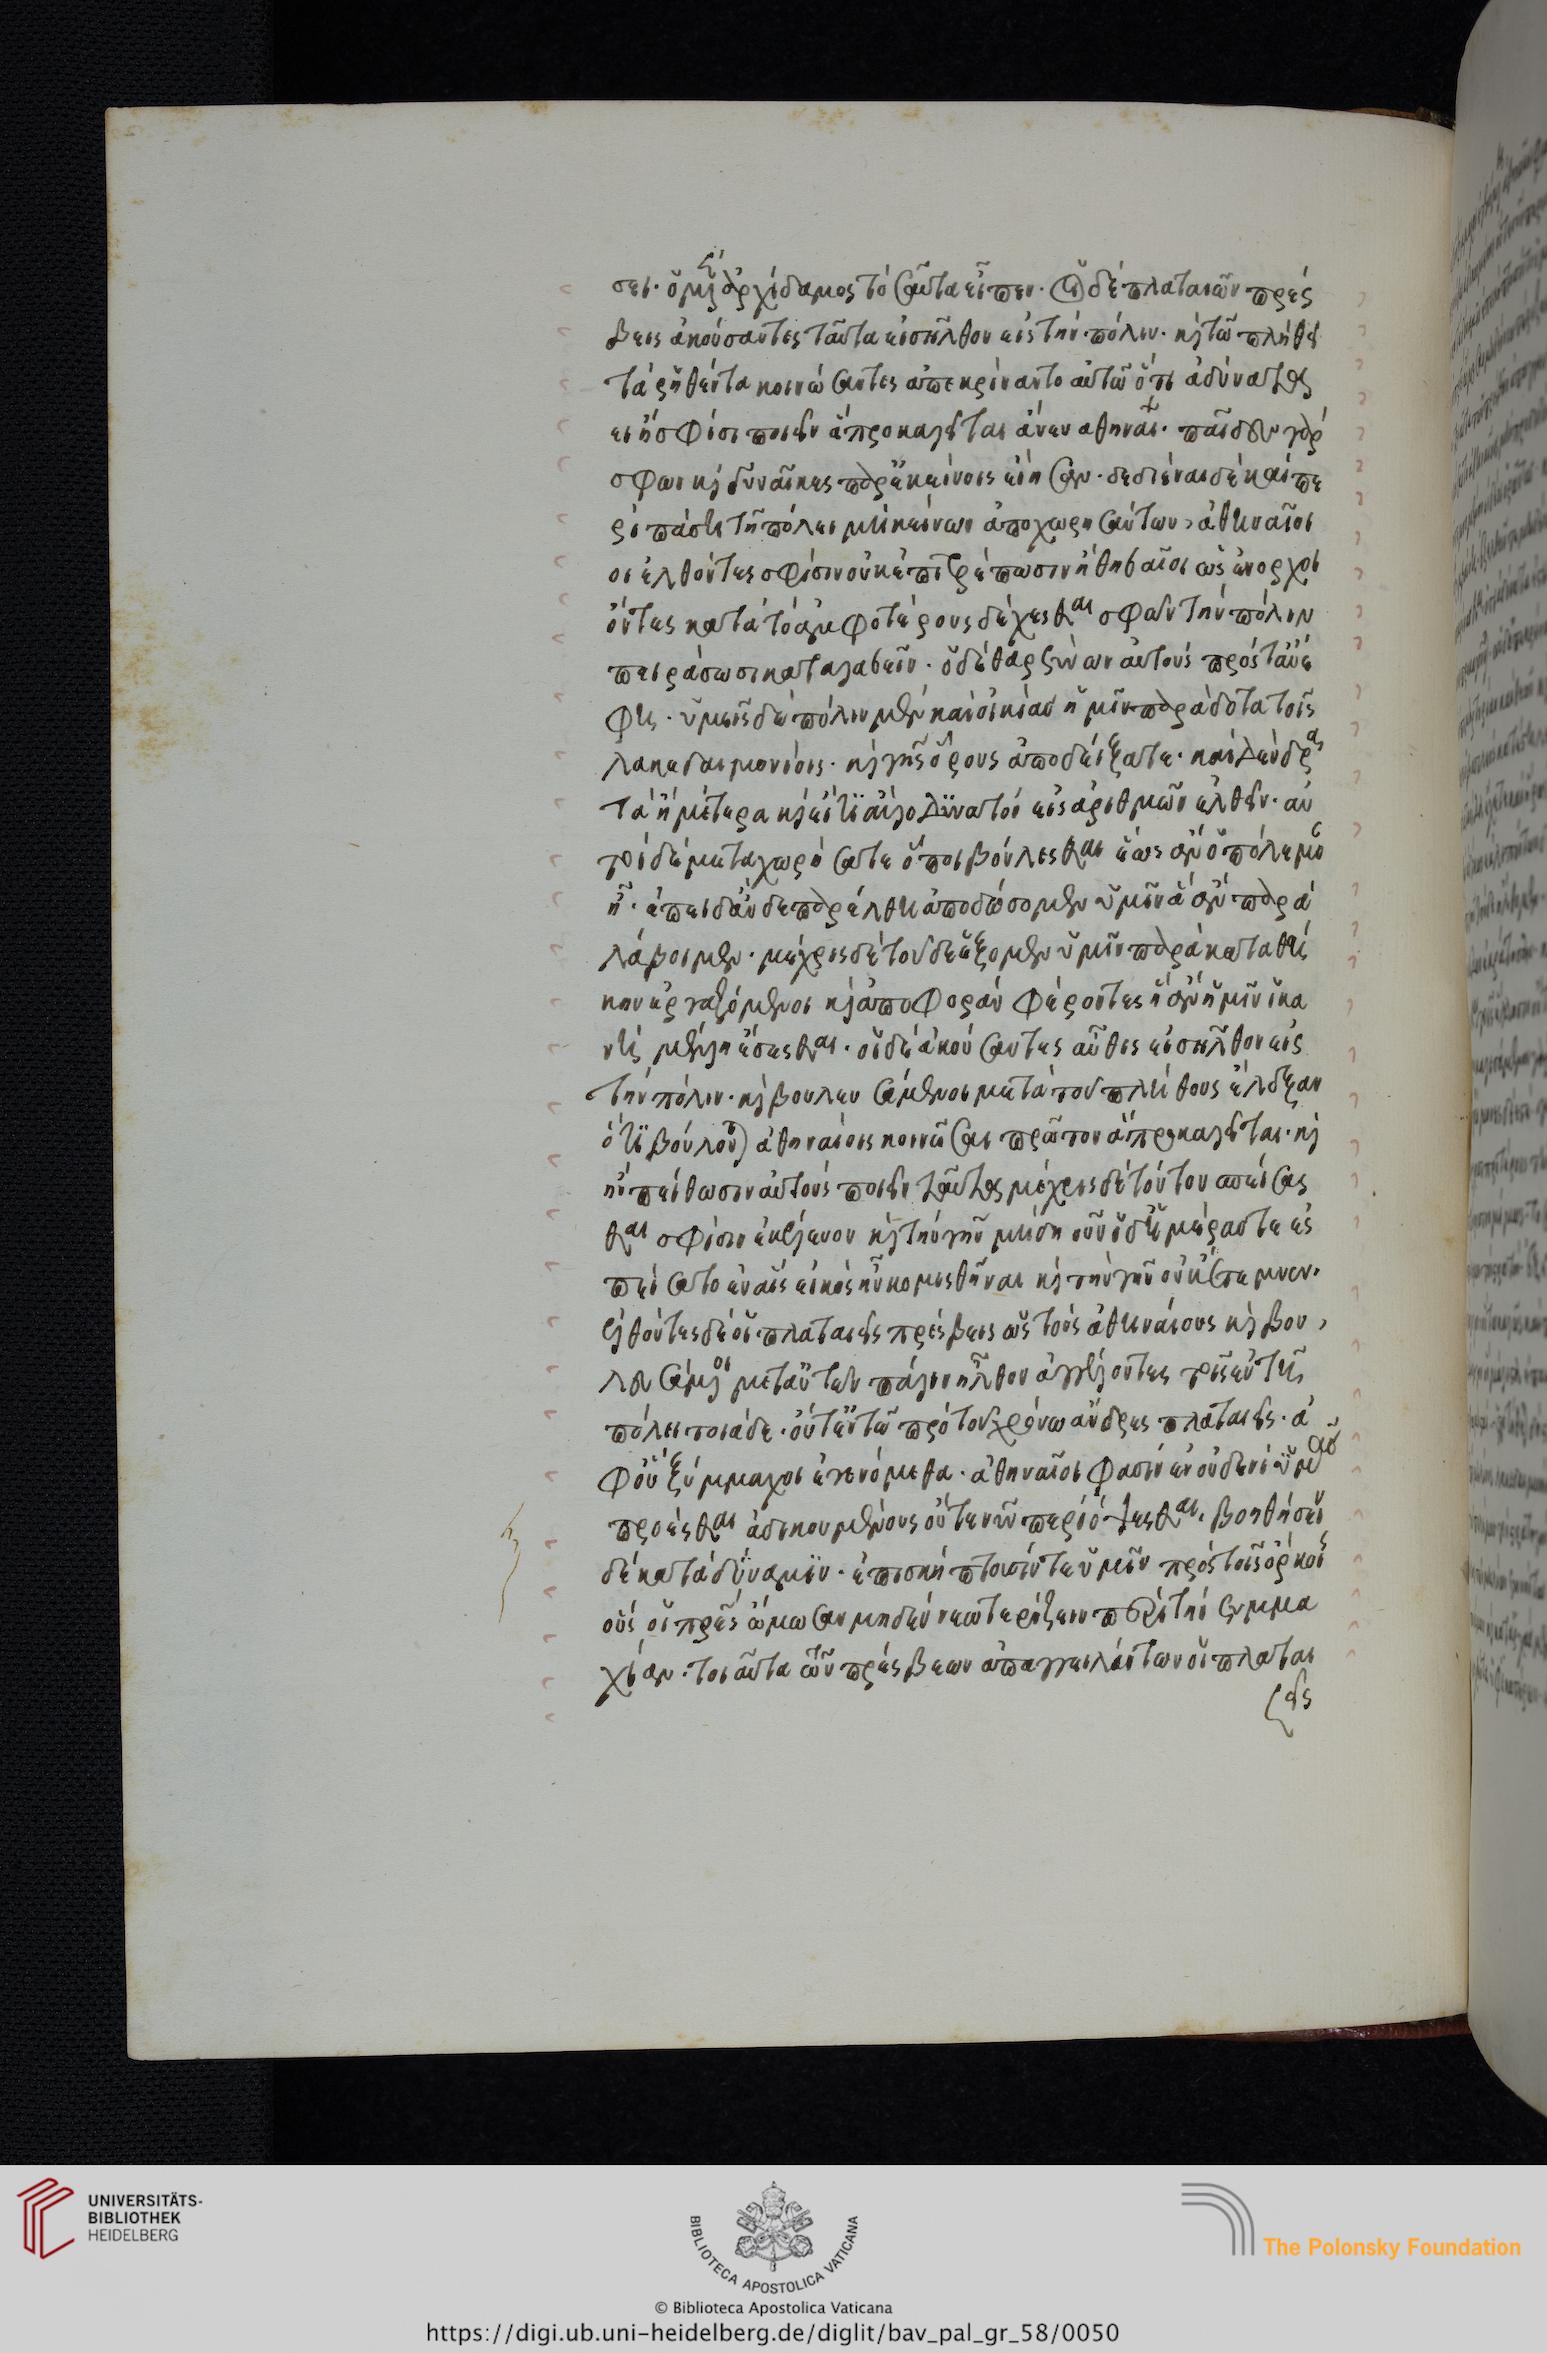 σει· ὁ μὲν ἀρχίδαμος τοσαῦτα εἶπεν· οἱ δὲ πλαταιῶν πρέσ
βεις ἀκούσαντες ταῦτα εἰσῆλθον εἰς τὴν πόλιν· καὶ τῶ πλήθει
τὰ ῥηθέντα κοινώσαντες ἀπεκρίναντο αὐτῶ ὅτι ἀδύνατα
εἴη σφίσι ποιεῖν ἃ προκαλεῖται ἄνευ ἀθηναίων· παῖδες γὰρ
σφων καὶ γυναῖκες παρ' ἐκείνοις εἴησαν· δεδιέναι δὲ καὶ πε
ρὶ πάση τῆ πόλει μὴ κείνων ἀποχωρησάντων, ἀθηναῖοι
οι ἐλθόντες σφίσιν οὐκ ἐπιτρέπωσιν ἢ θηβαῖοι ὡς ἔνορχοι
ὄντες κατὰ τὸ ἀμφοτέρους δέχεσθαι σφῶν τὴν πόλιν
πειράσωσι καταλαβεῖν· ὁ δὲ θαρσύνων αὐτοὺς πρὸς ταῦτα ἔ
φη· ὑμεῖς δὲ πόλιν μὲν καὶ οἰκίας ἡμῖν παράδοτε τοῖς
λακεδαιμονίοις· καὶ γῆς ὅρους ἀποδείξατε· καὶ δένδρα
τὰ ἡμέτερα καὶ εἴ τι ἄλλο δυνατὸν εἰς ἀριθμὸν ἐλθεῖν· αὐ
τοὶ δὲ μεταχωρήσατε ὅποι βούλεσθαι ἕως ἂν ὁ πόλεμος
ἦ· ἐπειδὰν δὲ παρέλθη ἀποδώσομεν ὑμῖν ἃ ἂν παρα
λάβοιμεν· μέχρις δὲ τοῦδε ἕξομεν ὑμῖν παρακαταθή
κην ἐργαζόμενοι καὶ ἀποφορὰν φέροντες ἣ ἂν ἡμῖν ἱκα
νὴ μέλλη ἔσεσθαι· οἱ δὲ ἀκούσαντες αὖθις εἰσῆλθον εἰς
τὴν πόλιν· καὶ βουλευσάμενοι μετὰ τοῦ πλήθους ἔλεξαν
ὅτι βούλονται ἀθηναίοις κοινῶσαι πρῶτον ἃ προκαλεῖται· καὶ
ἢν πείθωσιν αὐτοὺς ποιεῖν ταῦτα μέχρις δὲ τούτου σπείσασ
θαι σφίσιν ἐκέλευον καὶ τὴν γῆν μὴ δηοῦν ὁ δὲ ἡμέρας τε ἐσ
πείσατο ἐν αἷς εἰκὸς ἦν κομισθῆναι καὶ τὴν γῆν οὐκ ἔτεμνεν·
ἐλθόντες δὲ οἱ πλαταιεῖς πρέσβεις ὡς τοὺς ἀθηναίους καὶ βου
λευσάμενοι μετ' αὐτῶν πάλιν ἦλθον ἀγγέλλοντες τοῖς ἐν τῆ
πόλει τοιάδε· οὔτ' ἐν τῶ πρὸ τοῦ χρόνω ἄνδρες πλαταιεῖς· ἀ
φ' οὗ ξύμμαχοι ἐγενόμεθα· ἀθηναῖοι φασὶν ἐν οὐδενὶ ὑμᾶς
προέσθαι ἀδικουμένους οὔτε νῦν περιόψεσθαι, βοηθήσειν
δὲ κατὰ δύναμιν· ἐπισκήπτουσίν τε ὑμῖν πρὸς τοῖς ὅρκοις
οὓς οἱ πρεσ ὤμωσαν μηδὲν νεωτερίζειν περὶ τὴν ξυμμα
χίαν· τοιαῦτα τῶν πρέσβεων ἀπαγγειλάντων οἱ πλαται
εῖς
UNIVERSITÄTS-
BIBLIOTHEK
HEIDELBERG
BIBLIOTECA APOSTOLICA VATICANA
The Polonsky Foundation
© Biblioteca Apostolica Vaticana
https://digi.ub.uni-heidelberg.de/diglit/bav_pal_gr_58/0050